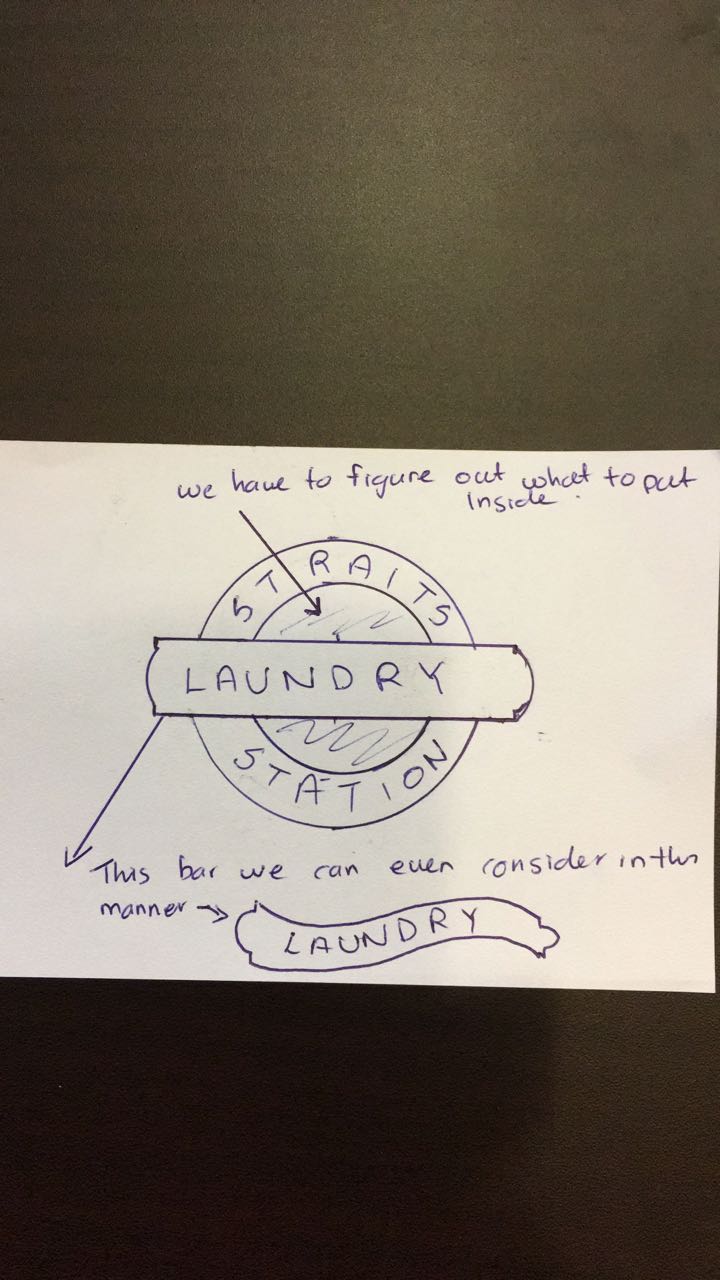 we have to figure out what to put
Inside.
STRAITS
LAUNDRY
STATION
This bar we can even consider in this
manner →
LAUNDRY